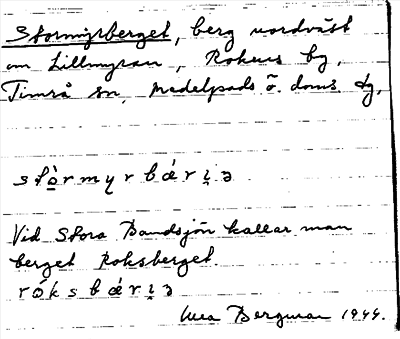 Stormyrberget, berg nordväst
om Lillmyran, Rokens by,
Timrå sn, Medelpads ö. doms. dg,
stòrmyrbǽrı̣ə
Vid Stora Bandsjön kallar man
berget Roksberget.
róksbǽrı̣ə
Bergman 1944.